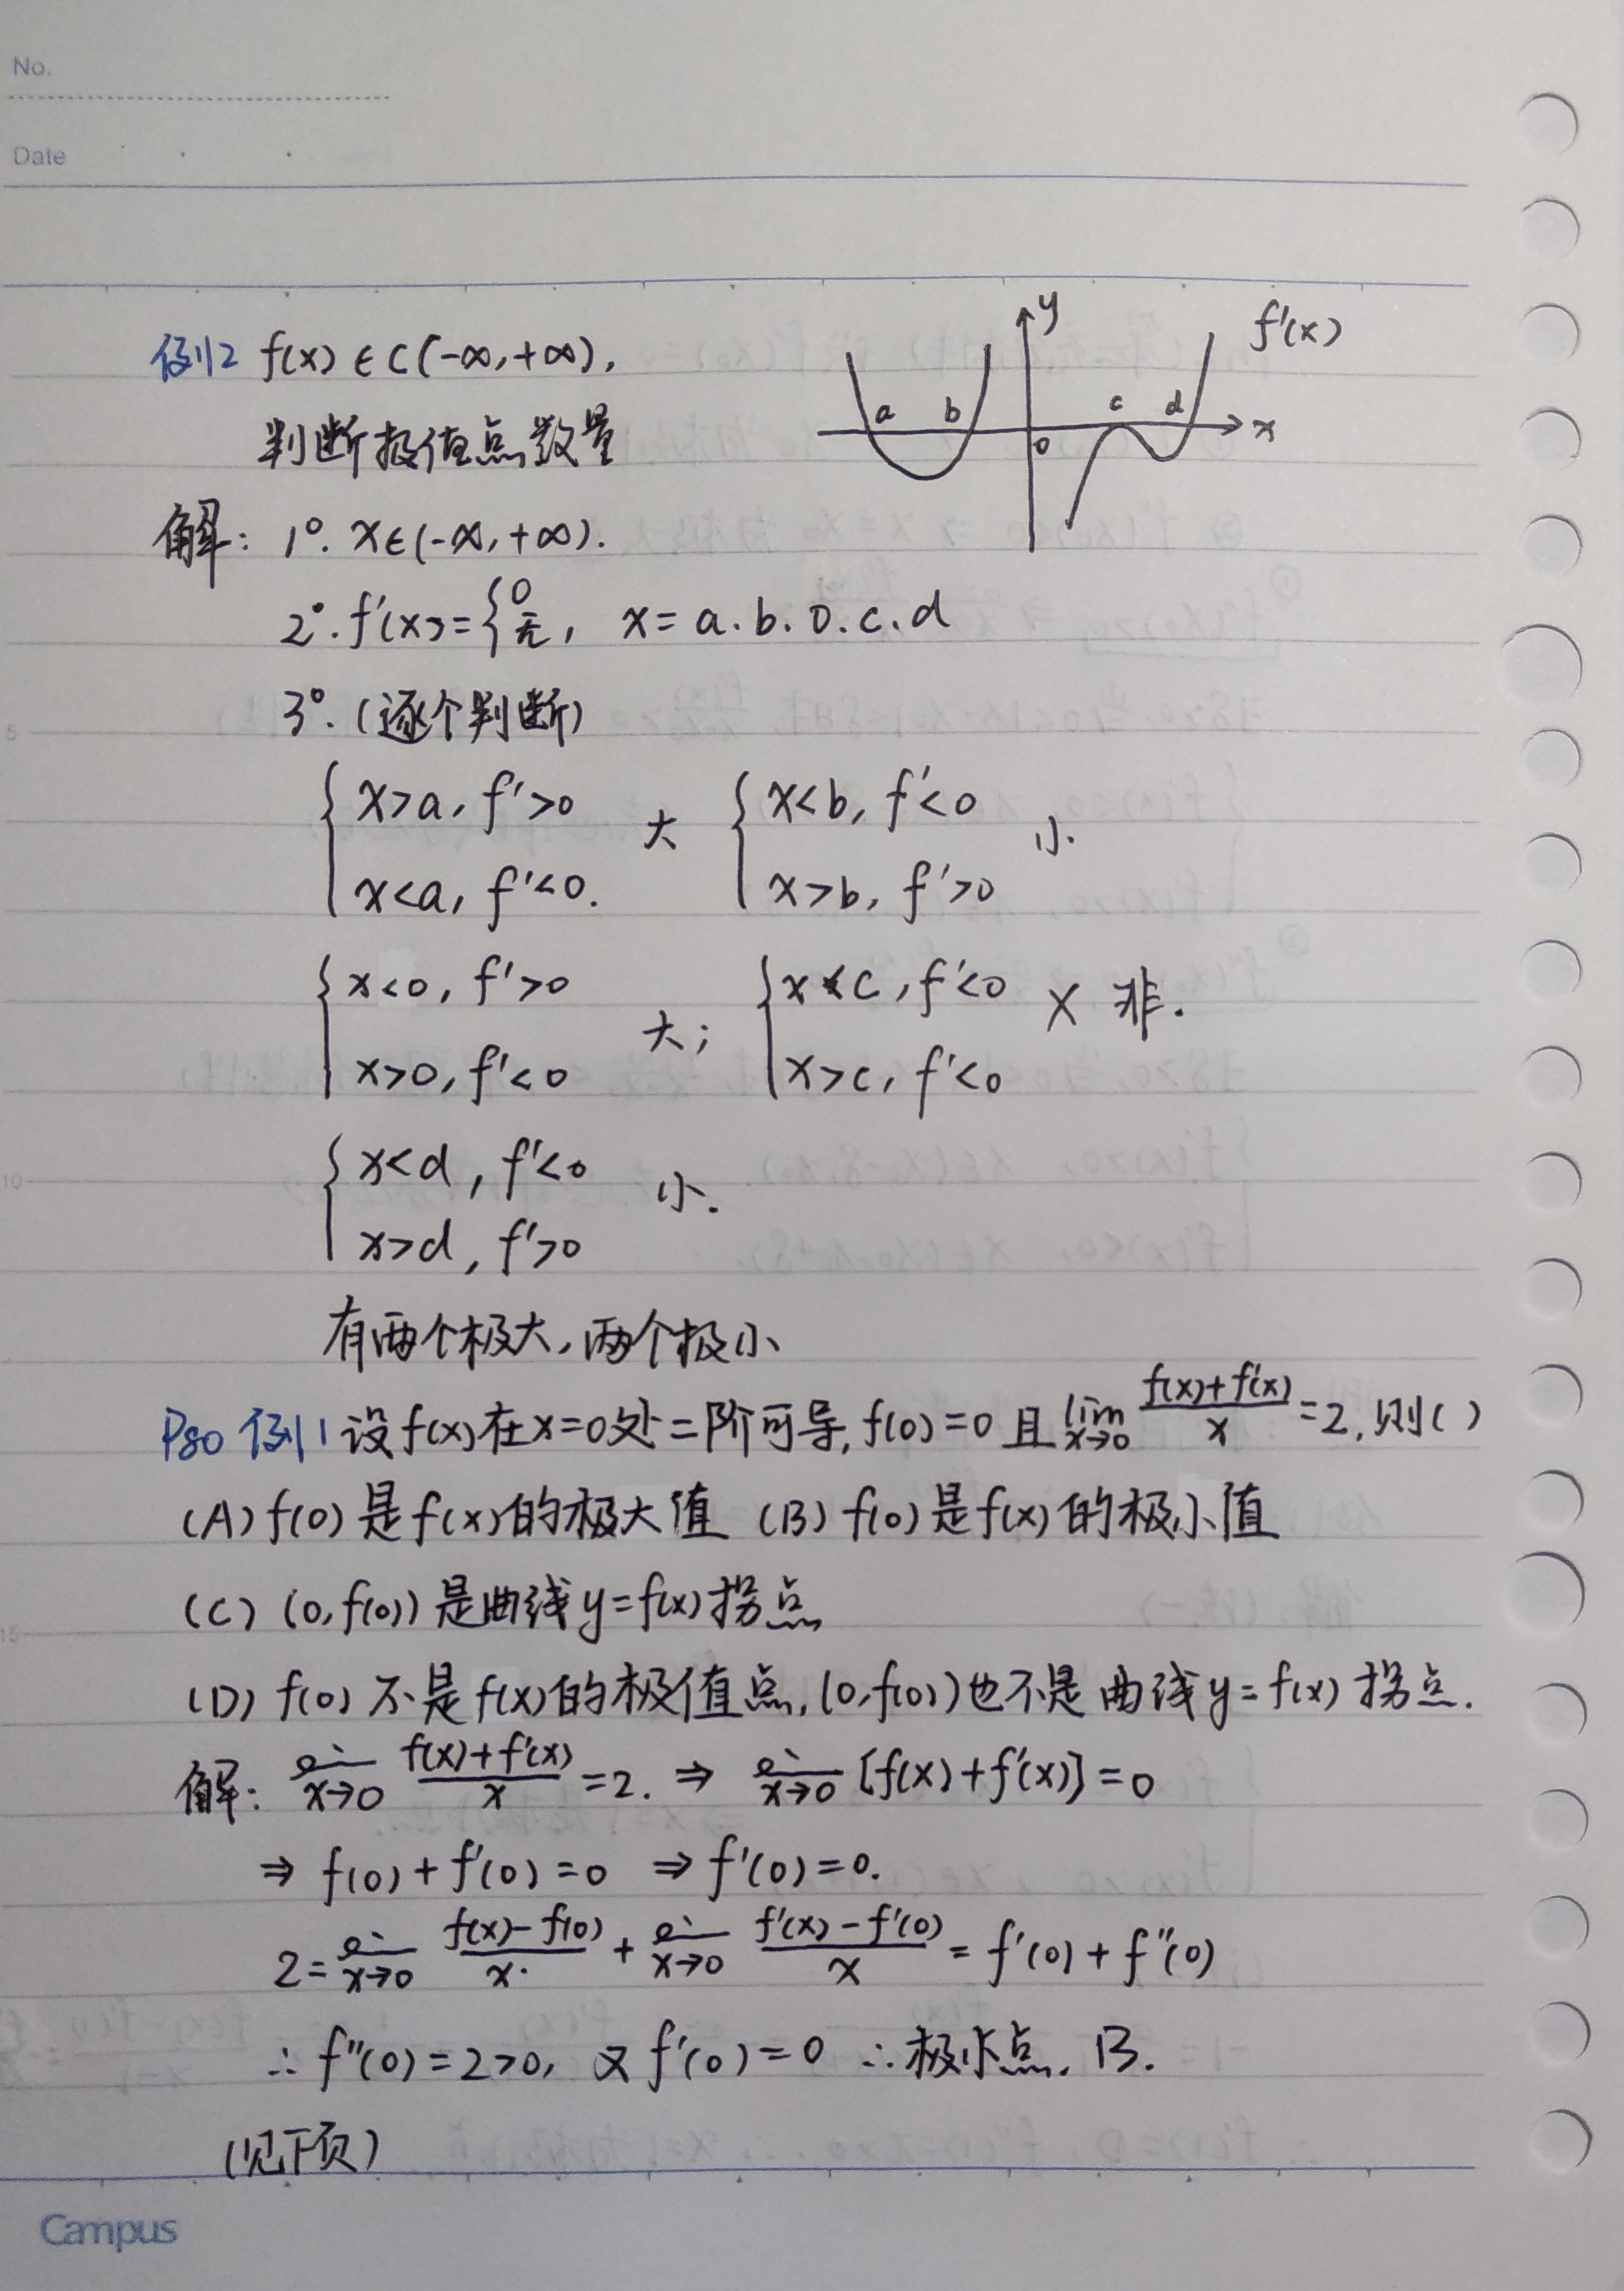 No.
Date
例2 f(x)∈C(-∞,+∞),
判断极值点数量
y f'(x)
a b c d
0 x
解: 1°. x∈(-∞,+∞).
2°. f'(x)={0 无, x=a.b.0.c.d
3°. (逐个判断)
{x>a, f'>0 x<a, f'<0. 大 {x<b, f'<0 x>b, f'>0 小.
{x<0, f'>0 x>0, f'<0 大; {x<c, f'<0 x>c, f'<0 × 非.
{x<d, f'<0 x>d, f'>0 小.
有两个极大,两个极小
P80 例1 设f(x)在x=0处二阶可导, f(0)=0 且 lim x→0 (f(x)+f'(x))/x =2, 则( )
(A) f(0)是f(x)的极大值 (B) f(0)是f(x)的极小值
(C) (0,f(0))是曲线y=f(x)拐点
(D) f(0)不是f(x)的极值点,(0,f(0))也不是曲线y=f(x)拐点.
解: lim x→0 (f(x)+f'(x))/x =2. ⇒ lim x→0 [f(x)+f'(x)]=0
⇒ f(0)+f'(0)=0 ⇒ f'(0)=0.
2= lim x→0 (f(x)-f(0))/x + lim x→0 (f'(x)-f'(0))/x = f'(0)+f''(0)
∴ f''(0)=2>0, 又f'(0)=0 ∴极小点. B.
(见下页)
5
10
15
Campus